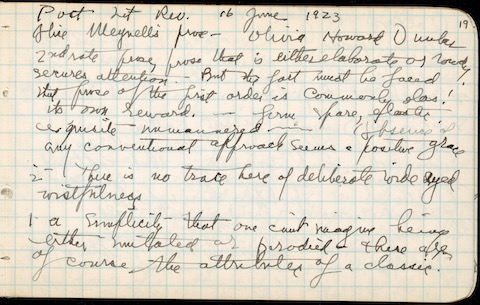 Post Lit Rev. 16 June 1923
19
Alice Meynell's prose - Olivia Howard Dunbar
2nd rate prose, prose that is either elaborate or rowdy
secures attention. - But the fact must be faced!
that prose of the first order is commonly, alas!
its own reward. - firm, spare, elastic,
exquisite unmannered - absence of
any conventional approach seems a positive grace
2 - There is no trace here of deliberate wide eyed
wistfulness
1 a simplicity that one can't imagine being
either imitated or parodied - these are
of course the attributes of a classic.